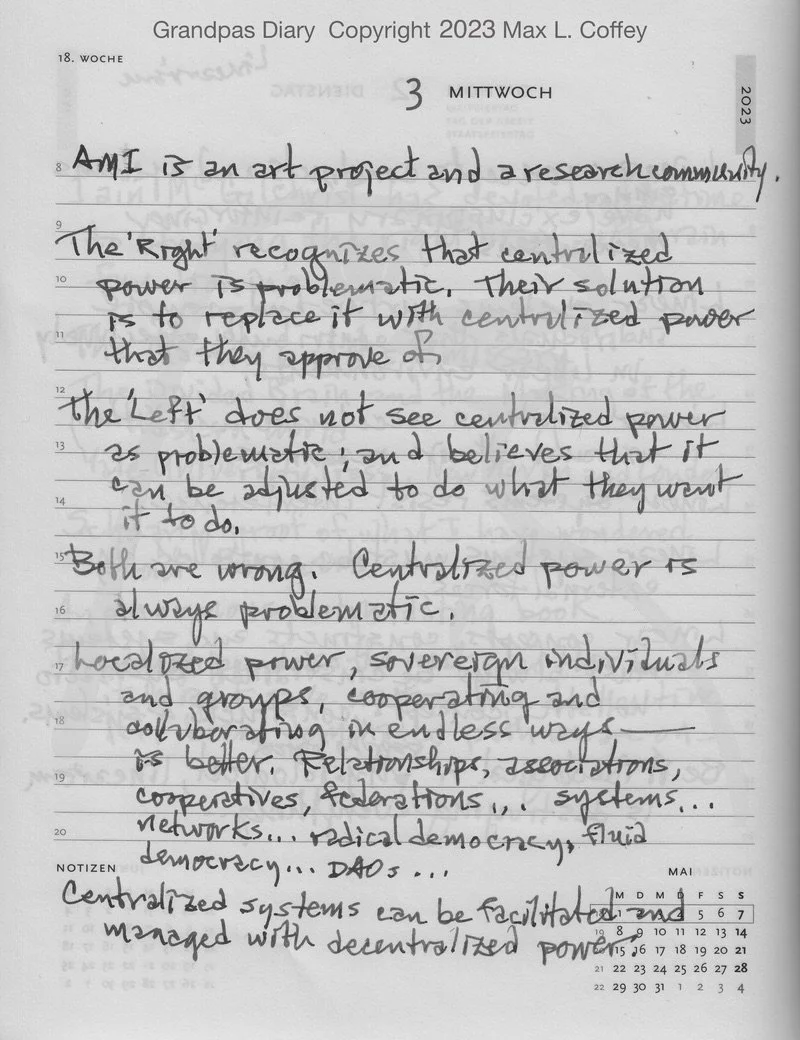 Grandpas Diary Copyright 2023 Max L. Coffey
18. WOCHE
3 MITTWOCH
2023
8 AMI is an art project and a research community.
9
The 'Right' recognizes that centralized
10 power is problematic. Their solution
is to replace it with centralized power
11 that they approve of.
12
The 'Left' does not see centralized power
13 as problematic; and believes that it
can be adjusted to do what they want
14 it to do.
15 Both are wrong. Centralized power is
16 always problematic.
17 Localized power, sovereign individuals
and groups, cooperating and
18 collaborating in endless ways —
is better. Relationships, associations,
19 cooperatives, federations... systems...
20 networks... radical democracy, fluid
democracy... DAOs ...
NOTIZEN
MAI
Centralized systems can be facilitated and
managed with decentralized power.
M D M F S S
5 6 7
19 8 9 10 11 12 13 14
15 16 17 18 19 20 21
21 22 23 24 25 26 27 28
22 29 30 31 1 2 3 4